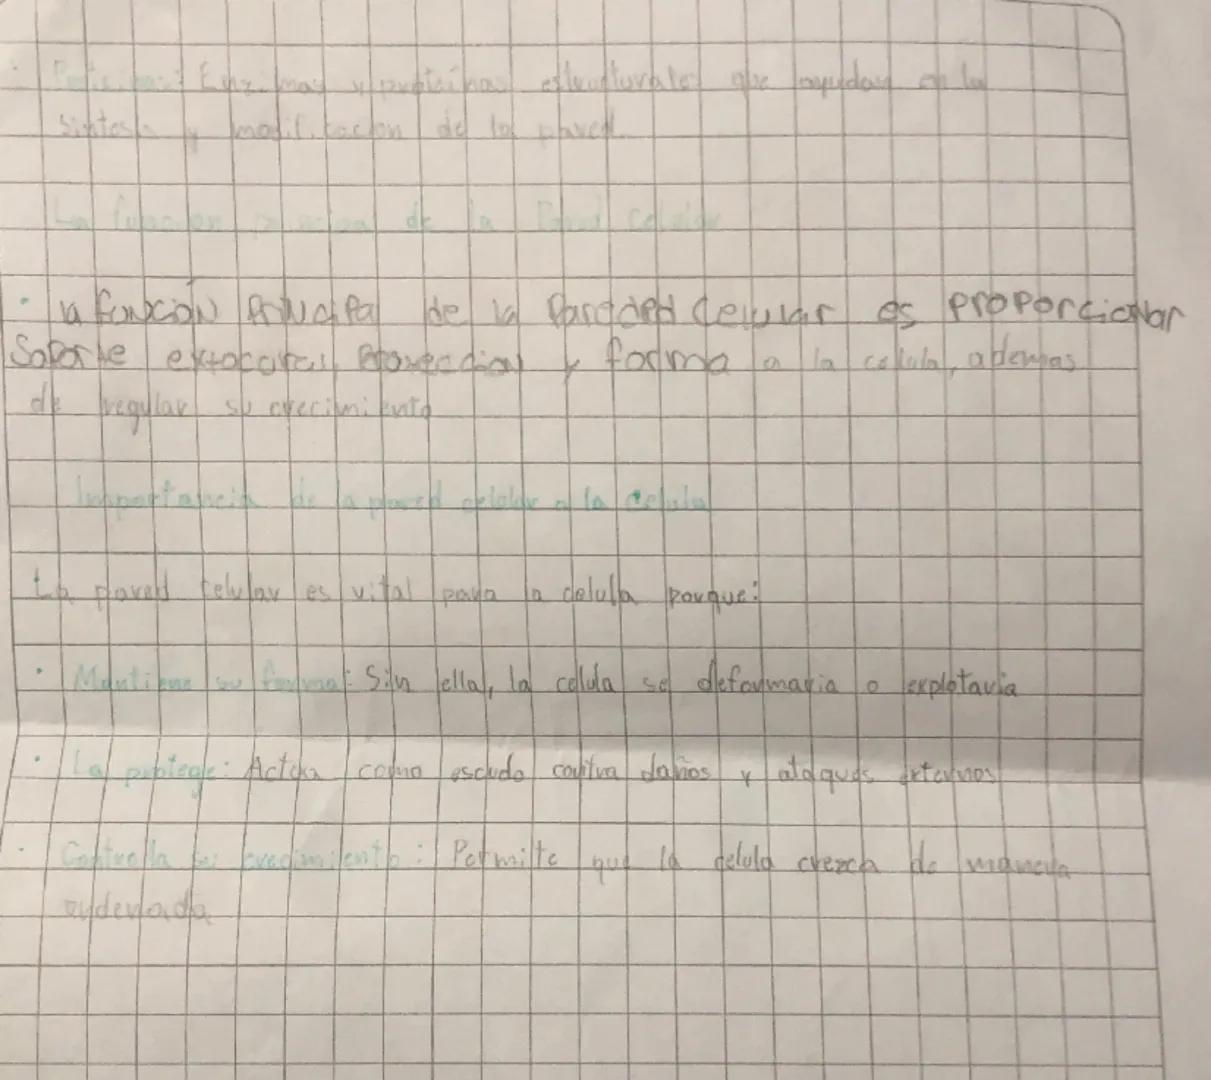 Enzimas y proteinas estructurales que ayudan en la
sintesis y modificacion de la pared
La funcion de la Pared Celular
• la función Principal de la Pareded Celular es proporcionar
Soporte y forma a la celula, ademas
de regular su crecimiento
Importancia de la pared celular a la celula
La pared celular es vital para la celula porque:
• Mantiene su forma: Sin ella, la celula se deformaria o explotaria
• La protege: Actúa como escudo contra daños y ataques externos
• Controla su crecimiento: Permite que la celula crezca de manera
ordenada